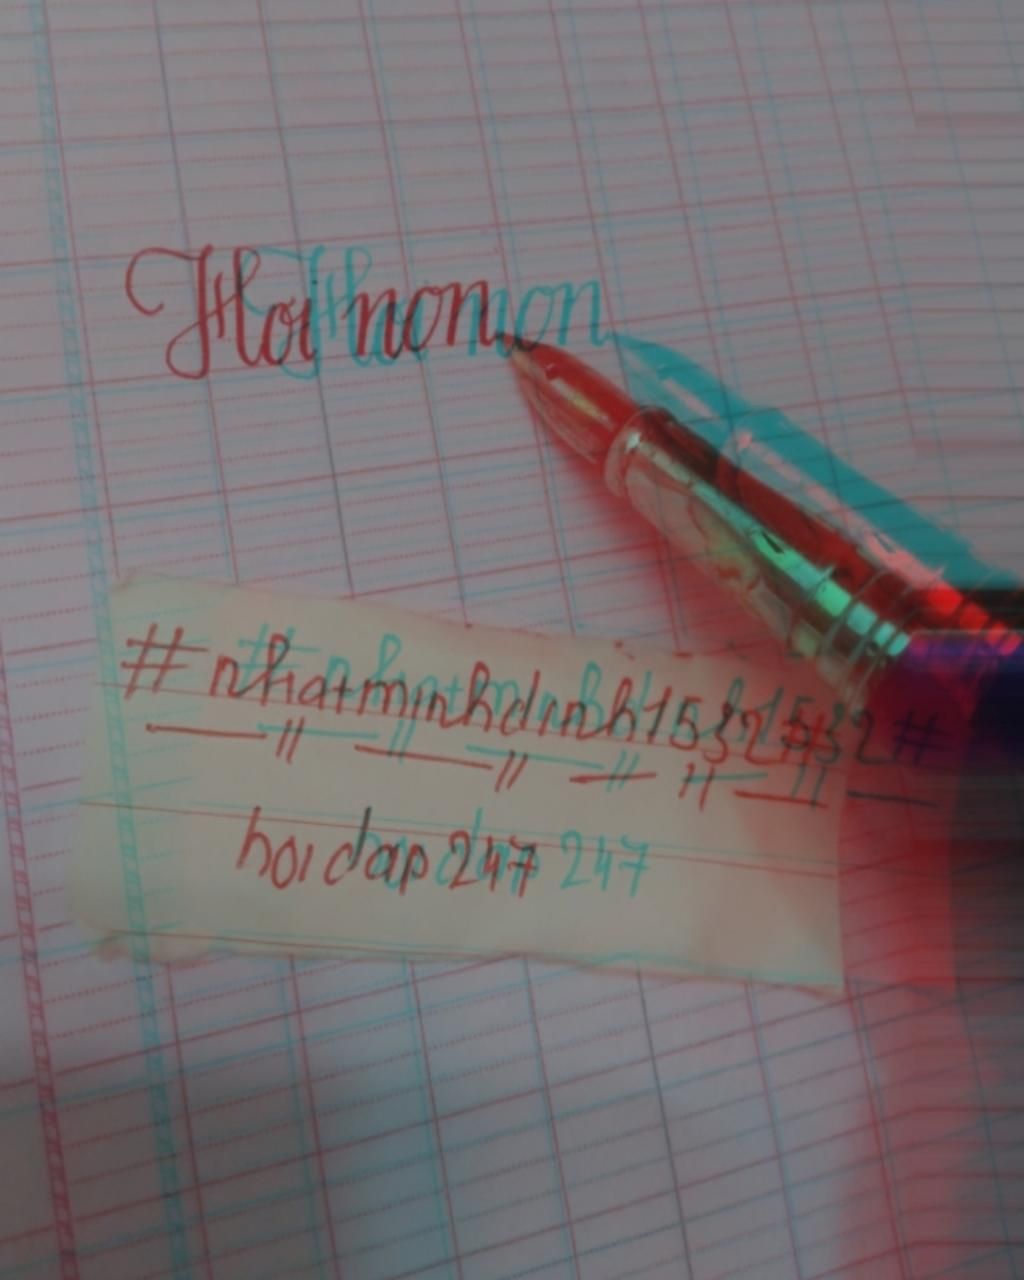 Hoi non
# nhatminhdinh1532#
hoidap 247